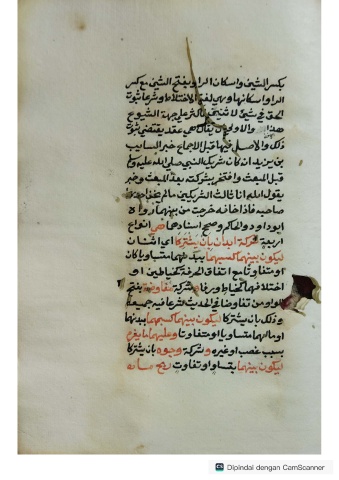 بكسر الشين واسكان الراء وبفتح الشين مع كسر
الراء واسكانها وهي لغة الاختلاط وشرعا ثبوت
الحق في شيئ لاثنين فاكثر على جهة الشيوع
هذا والاولى ان يقال هي عقد يقتضي ثبوت
ذلك والاصل فيها قبل الاجماع خبر السايب
بن يزيد انه كان شريك النبي صلى الله عليه وسلم
قبل المبعث وافتخر بشركته بعد المبعث وخبر
يقول الله انا ثالث الشريكين مالم يخن احدهما
صاحبه فاذا خانه خرجت من بينهما رواه
ابو داود والحاكم وصحح اسنادهما هي انواع
اربعة شركة ابدان بان يشتركا اي اثنان
ليكون بينهما كسبهما ببدنهما متساويا كان
او متفاوتا مع اتفاق الحرفة كخياطين او
اختلافهما كخياط ورفاء وشركة مفاوضة بفتح
الواو من تفاوضا في الحديث شرعا فيه جميعا
وذلك بان يشتركا ليكون بينهما كسبهما ببدنهما
او مالهما متساويا او متفاوتا وعليهما ما يغرم
بسبب غصب او غيره وشركة وجوه بان يشتركا
ليكون بينهما بتساو او تفاوت ربح ما
Dipindai dengan CamScanner